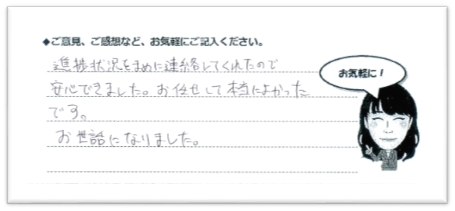 ◆ご意見、ご感想など、お気軽にご記入ください。
進捗状況をまめに連絡してくれたので
安心できました。お任せして本当によかった
です。
お世話になりました。
お気軽に！